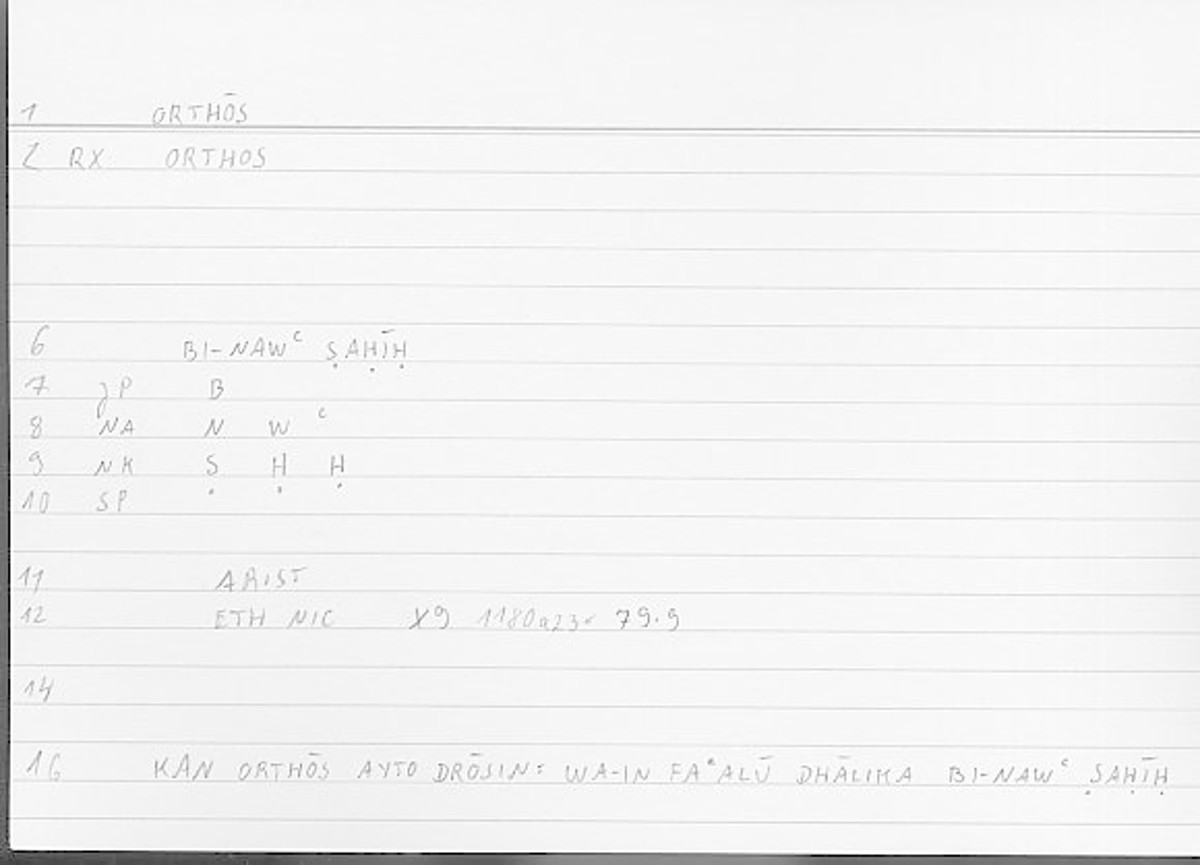 1 ORTHŌS
2 RX ORTHOS
6 BI-NAWᶜ ṢAḤĪḤ
7 JP B
8 NA N W ᶜ
9 NK Ṣ Ḥ Ḥ
10 SP
11 ARIST
12 ETH NIC X9 1180a23 79.9
14
16 KAN ORTHŌS AYTO DRŌSIN: WA-IN FAᶜALŪ DHĀLIKA BI-NAWᶜ ṢAḤĪḤ